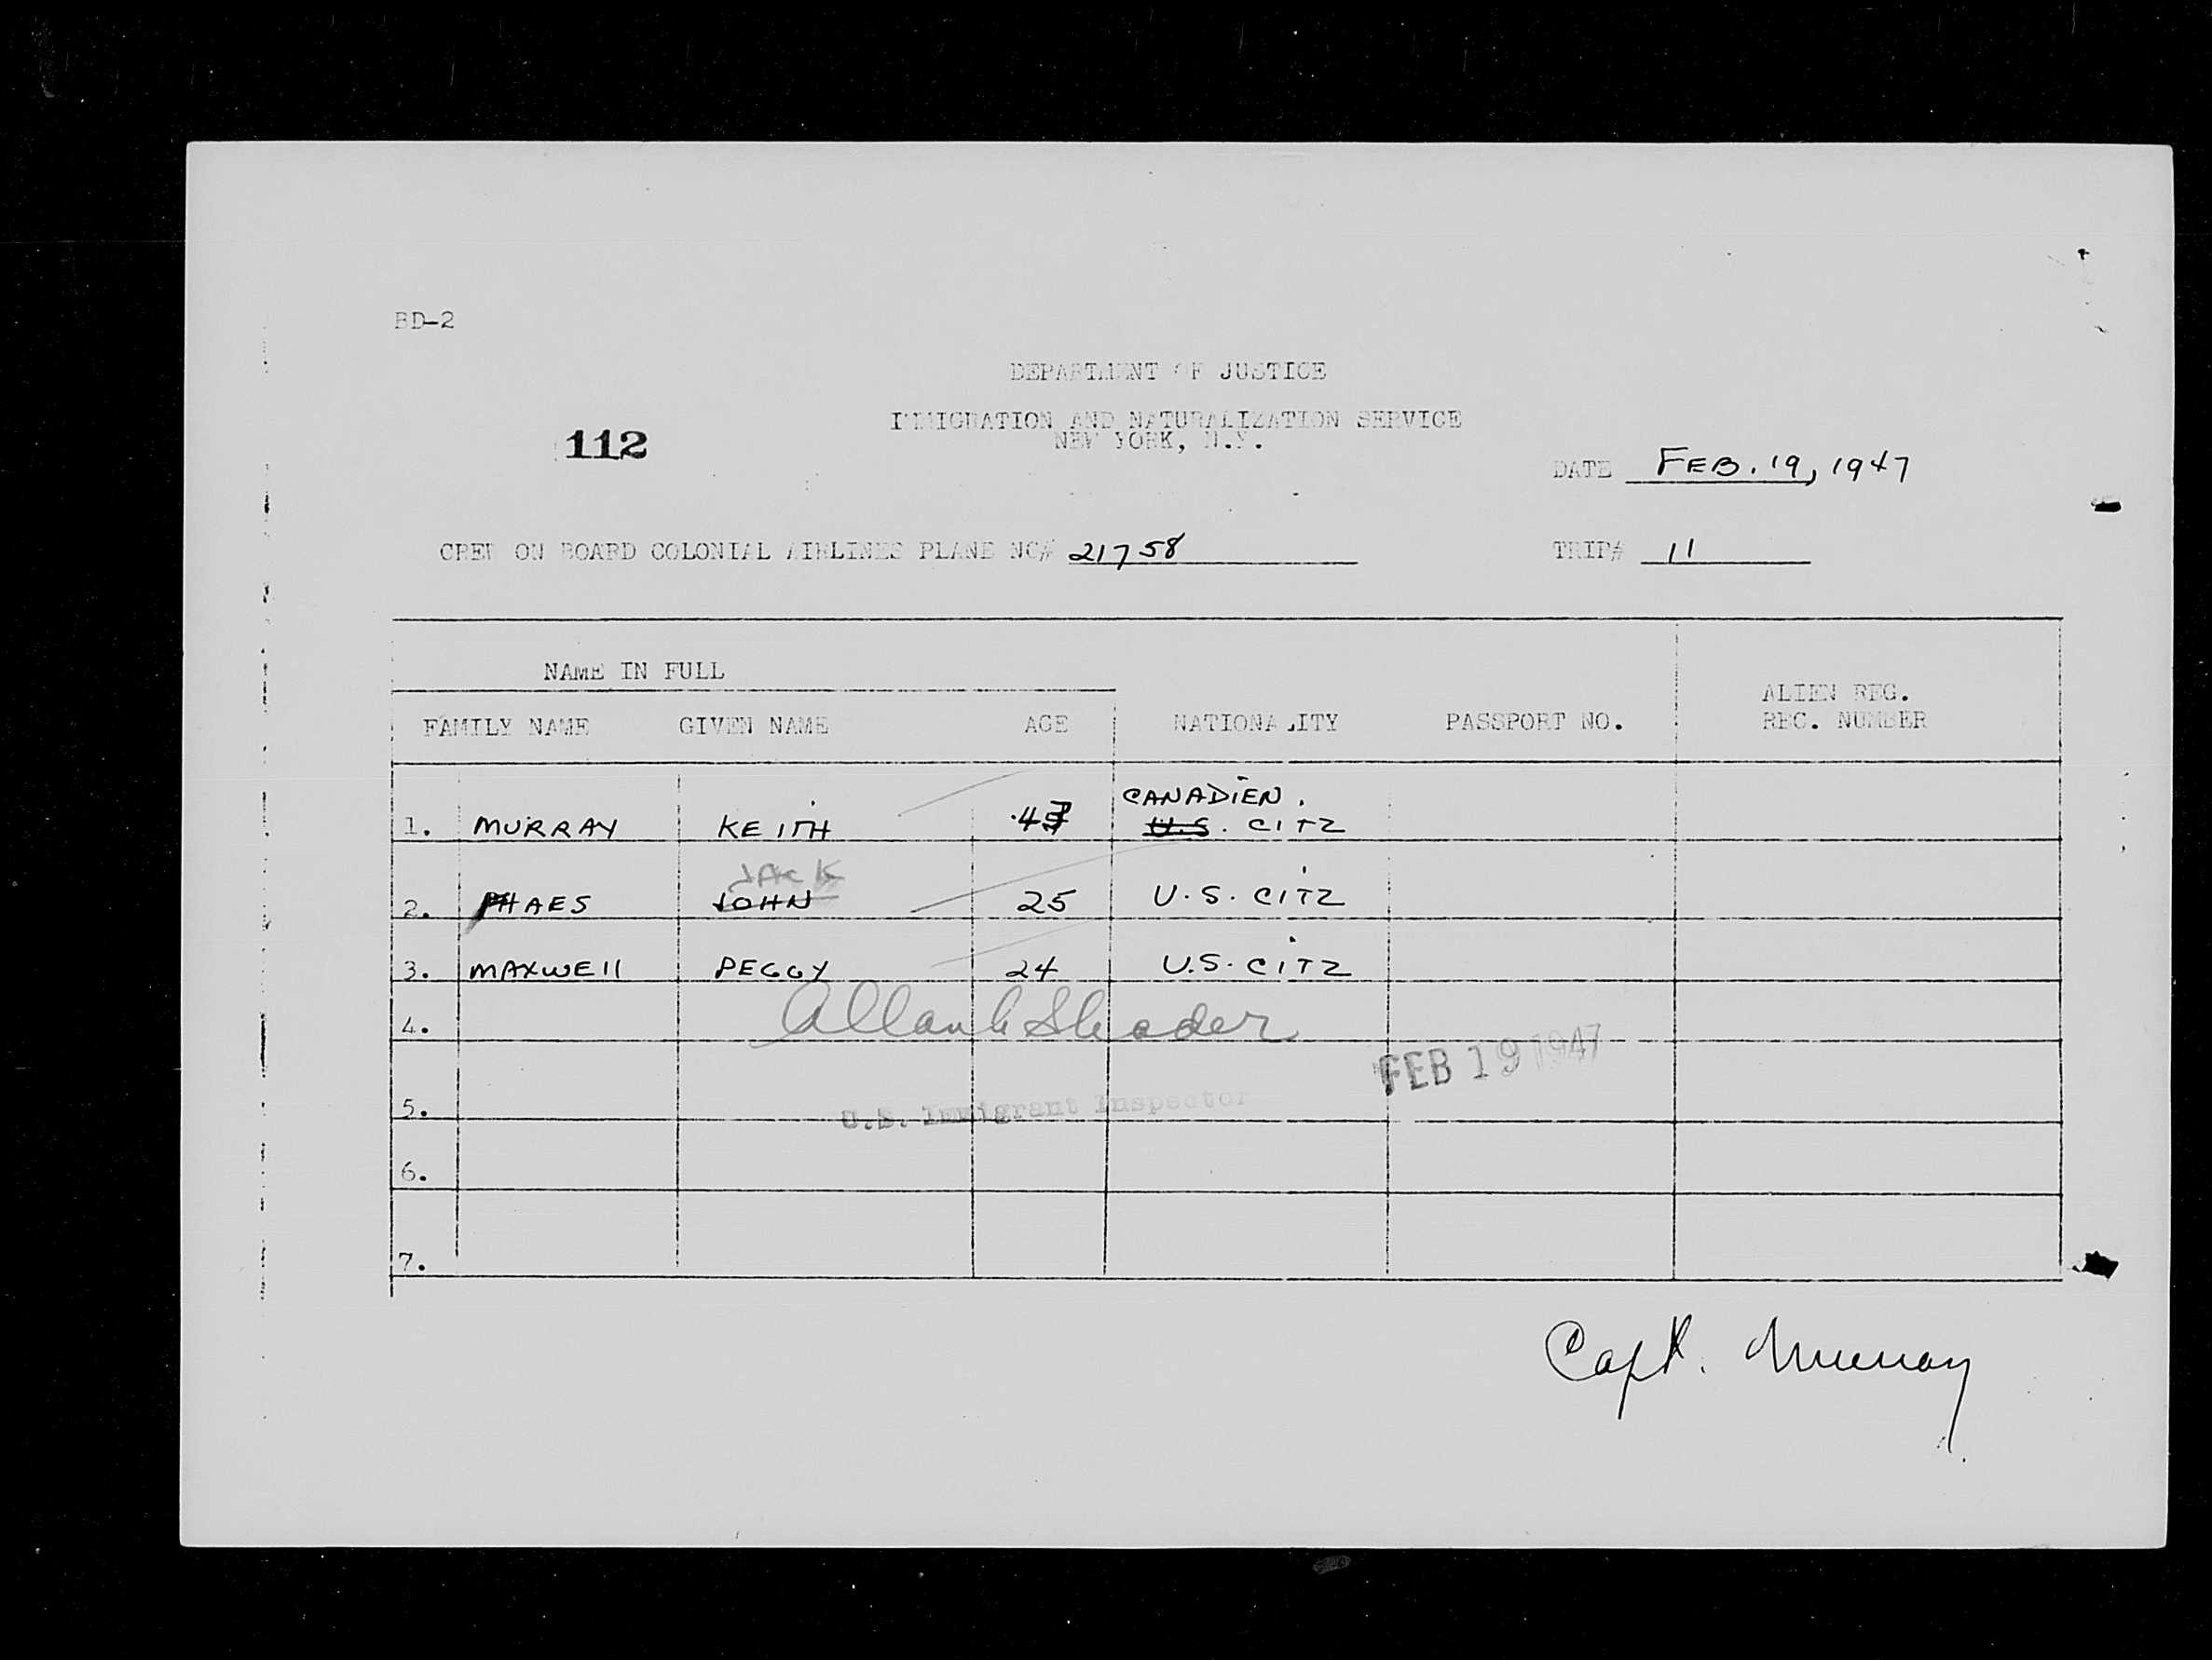 BD-2
DEPARTMENT OF JUSTICE
IMMIGRATION AND NATURALIZATION SERVICE
NEW YORK, N.Y.
112
DATE FEB. 19, 1947
CREW ON BOARD COLONIAL AIRLINES PLANE NO# 21758 TRIP# 11
NAME IN FULL
ALIEN REG.
FAMILY NAME GIVEN NAME AGE NATIONALITY PASSPORT NO. REC. NUMBER
CANADIEN.
1. MURRAY KEITH U.S. CITZ
JACK
2. JOHN 25 U.S. CITZ
3. MAXWEll PEGGY 24 U.S. CITZ
4. Allan
FEB 19 1947
5. U.S. Immigrant Inspector
6.
7.
Capt. Murray